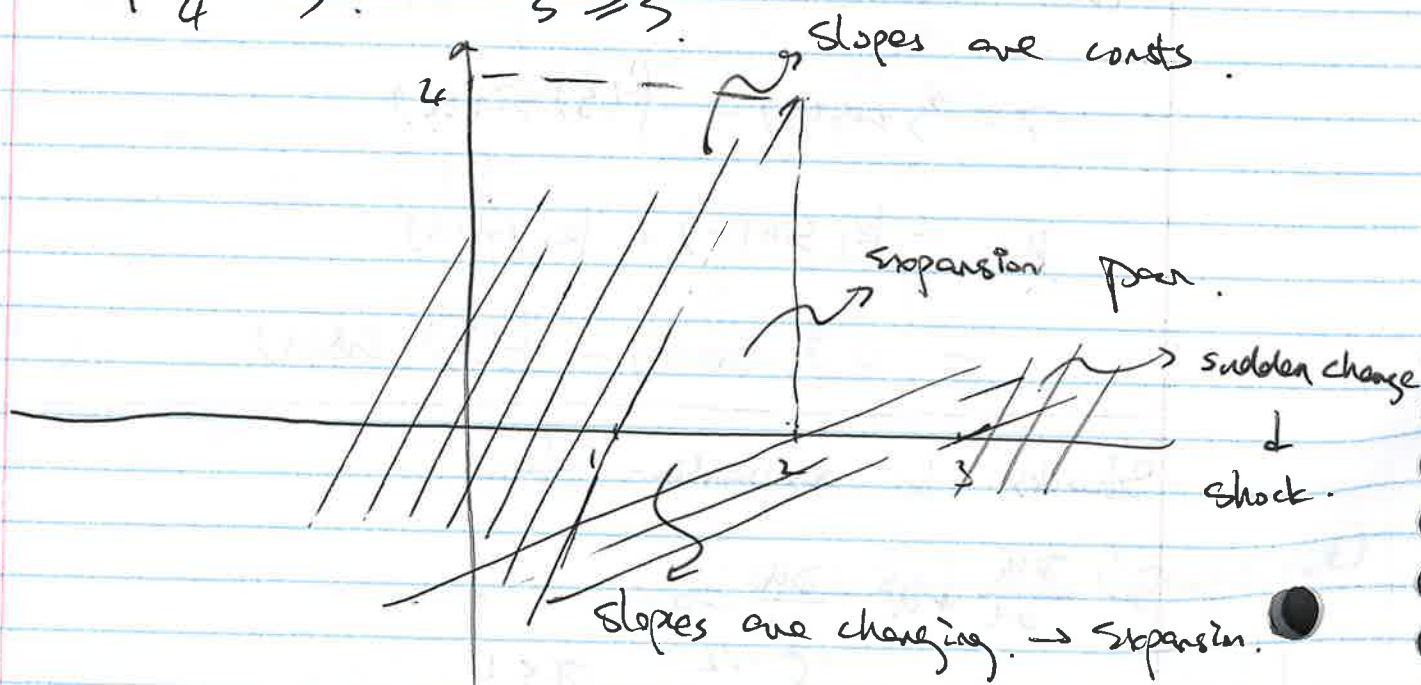 4 s ⩾ 3.
slopes are consts.
4
expansion
sudden change
↓
shock.
1 2 3
slopes are changing. → expansion.